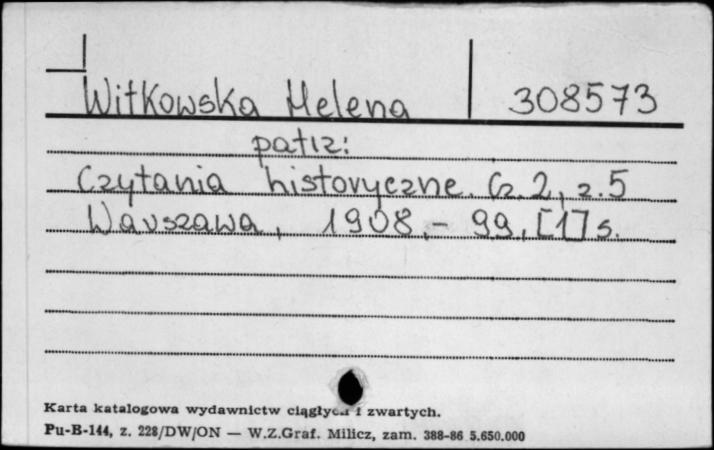 Witkowska Helena 308573
patrz:
Czytania historyczne. Cz. 2, z. 5
Warszawa, 1908.- 99, [1] s.
Karta katalogowa wydawnictw ciągłych i zwartych.
Pu-B-144, z. 228/DW/ON — W.Z.Graf. Milicz, zam. 388-86 5.650.000